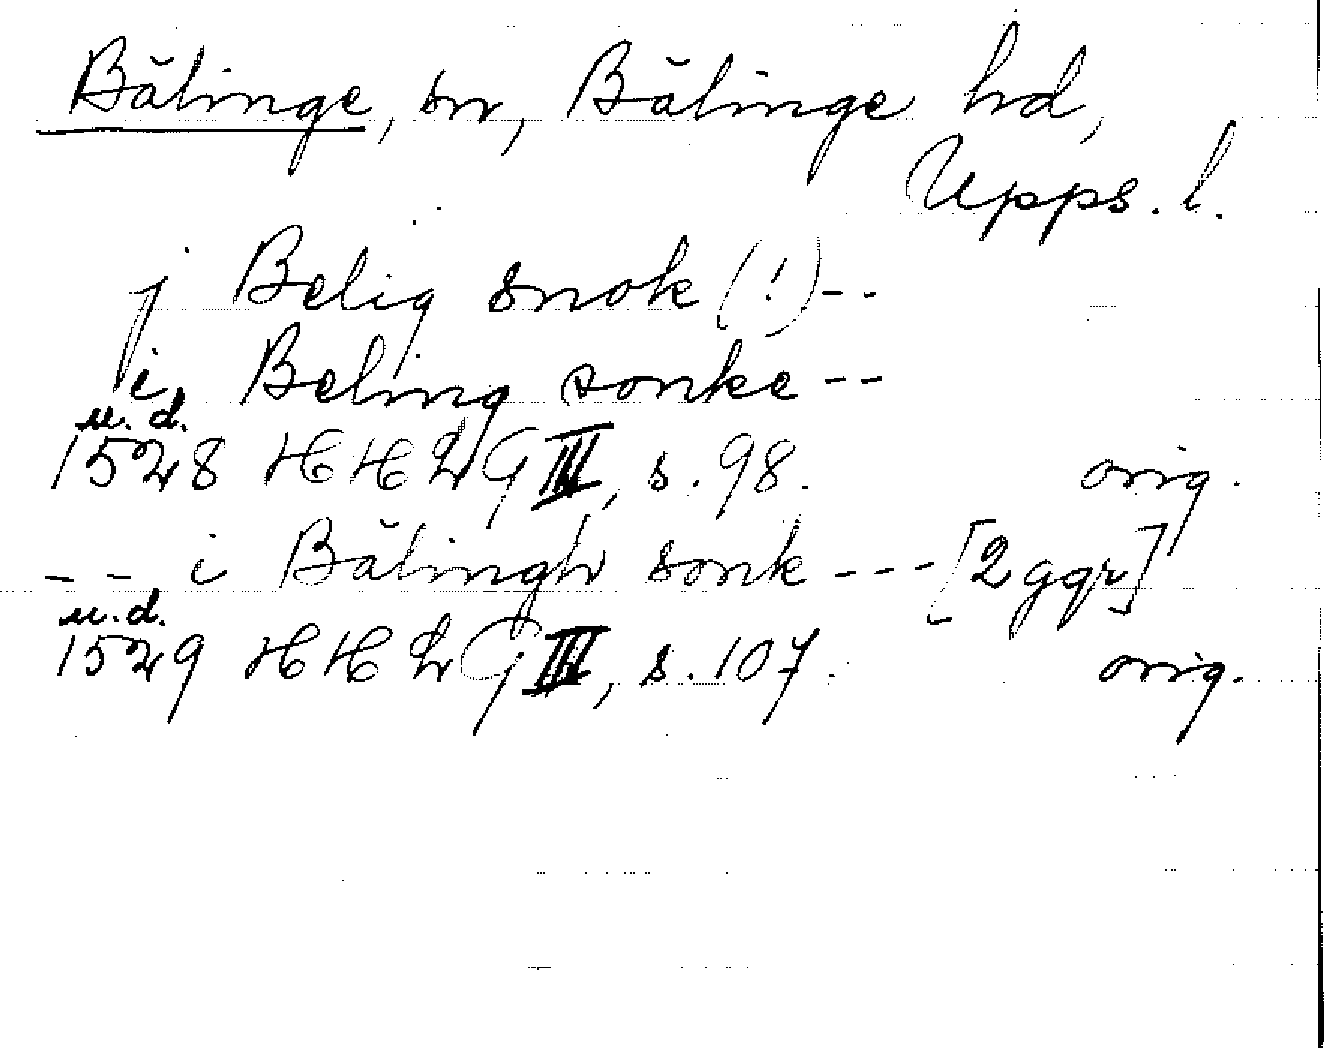 Bälinge, sn, Bälinge hd,
Upps. l.
j Belig snok (!) --
i Beling sonke --
u. d.
1528 HHLG III, s. 98. orig.
-- i Bälingh sonk --- [2 ggr]
u. d.
1529 HHLG III, s. 107. orig.